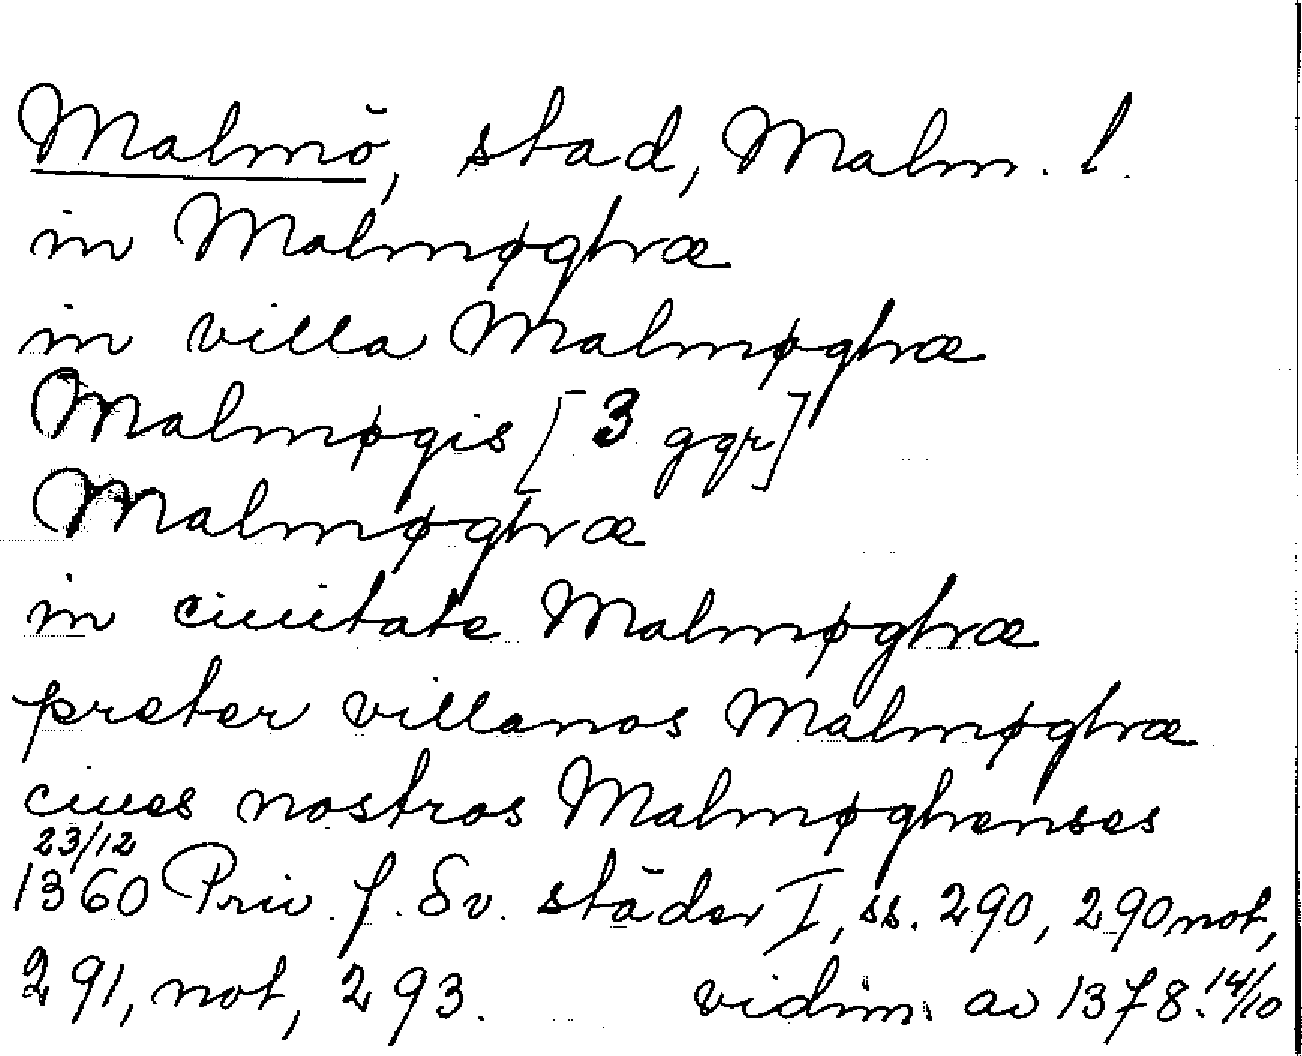 Malmö, stad, Malm. l.
in Malmøghæ
in villa Malmøghæ
Malmøgis [3 ggr]
Malmøghæ
in ciuitate Malmøghæ
preter villanos Malmøghæ
ciues nostros Malmøghenses
23/12
1360 Priv. f. Sv. städer I, ss. 290, 290 not,
291, not, 293. vidim. av 1378.14/10